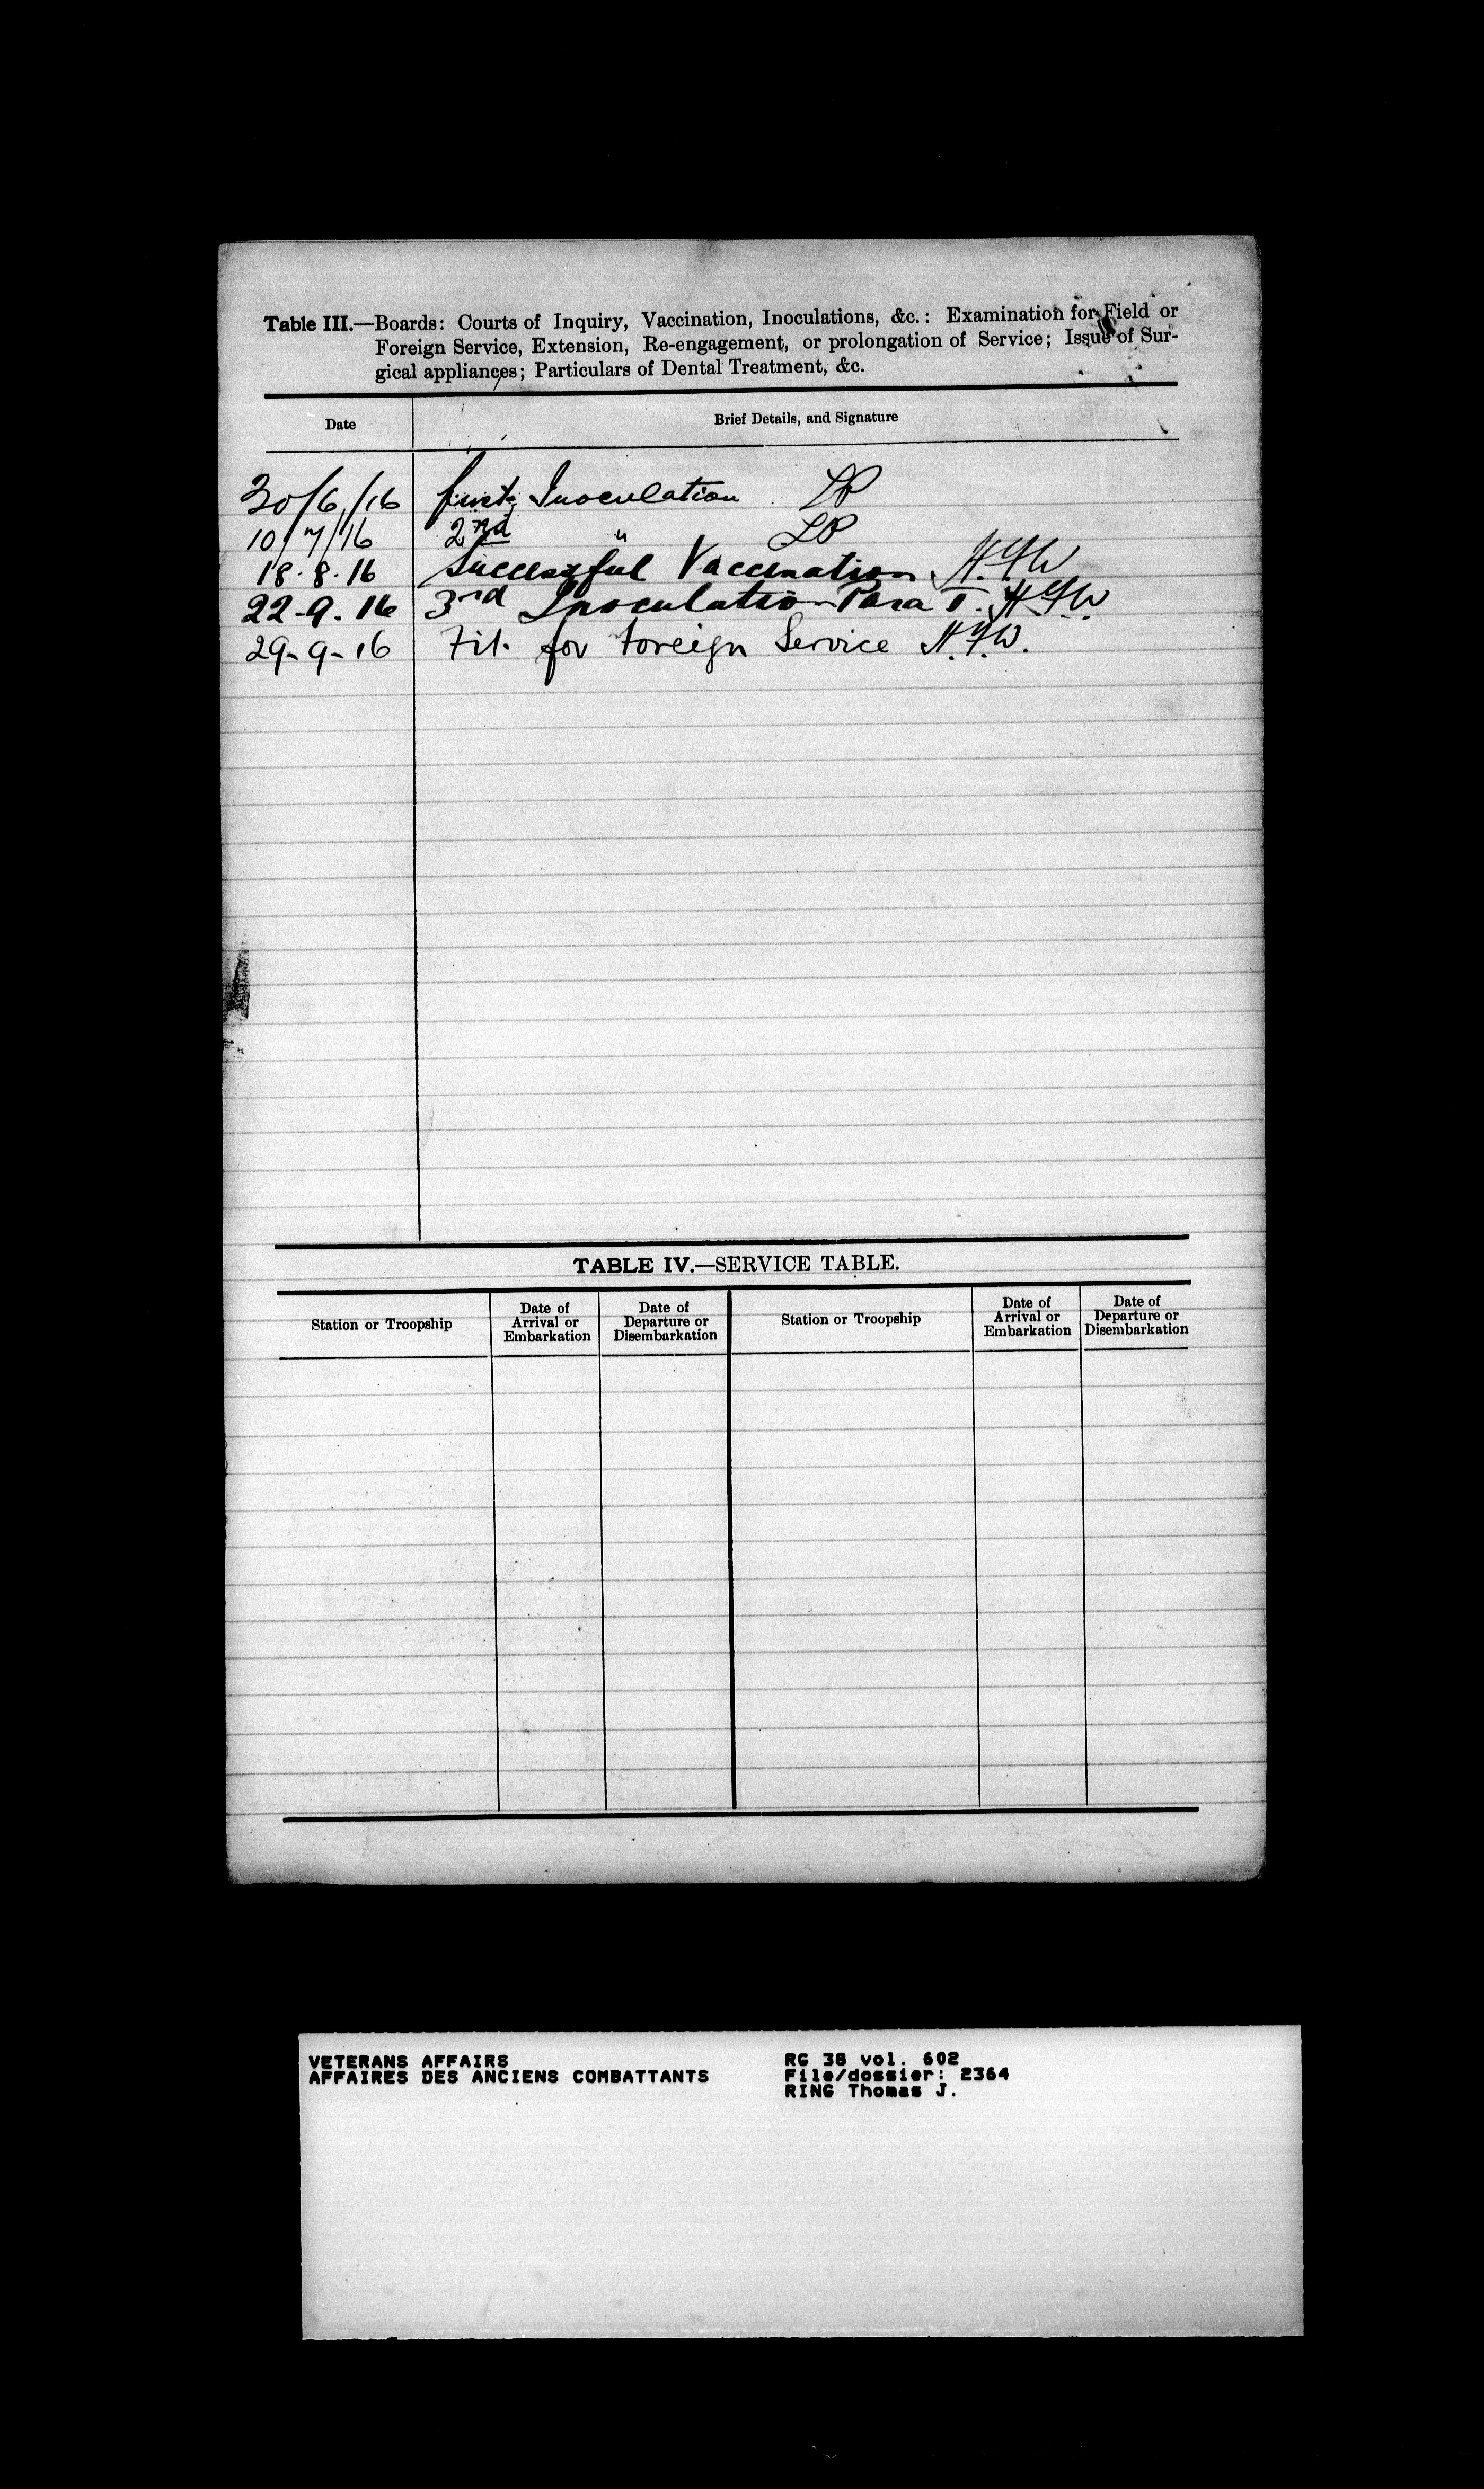 Table III.—Boards: Courts of Inquiry, Vaccination, Inoculations, &c.: Examination for Field or
Foreign Service, Extension, Re-engagement, or prolongation of Service; Issue of Sur-
gical appliances; Particulars of Dental Treatment, &c.
Date Brief Details, and Signature
30/6/16 first Inoculation LP
10/7/16 2nd " LP
18.8.16 Successful Vaccination H.Y.W
22-9.16 3rd Inoculation Para T. H.Y.W.
29-9-16 Fit for Foreign Service H.Y.W.
TABLE IV.—SERVICE TABLE.
Station or Troopship Date of Arrival or Embarkation Date of Departure or Disembarkation Station or Troopship Date of Arrival or Embarkation Date of Departure or Disembarkation
VETERANS AFFAIRS RG 38 vol. 602
AFFAIRES DES ANCIENS COMBATTANTS File/dossier: 2364
RING Thomas J.